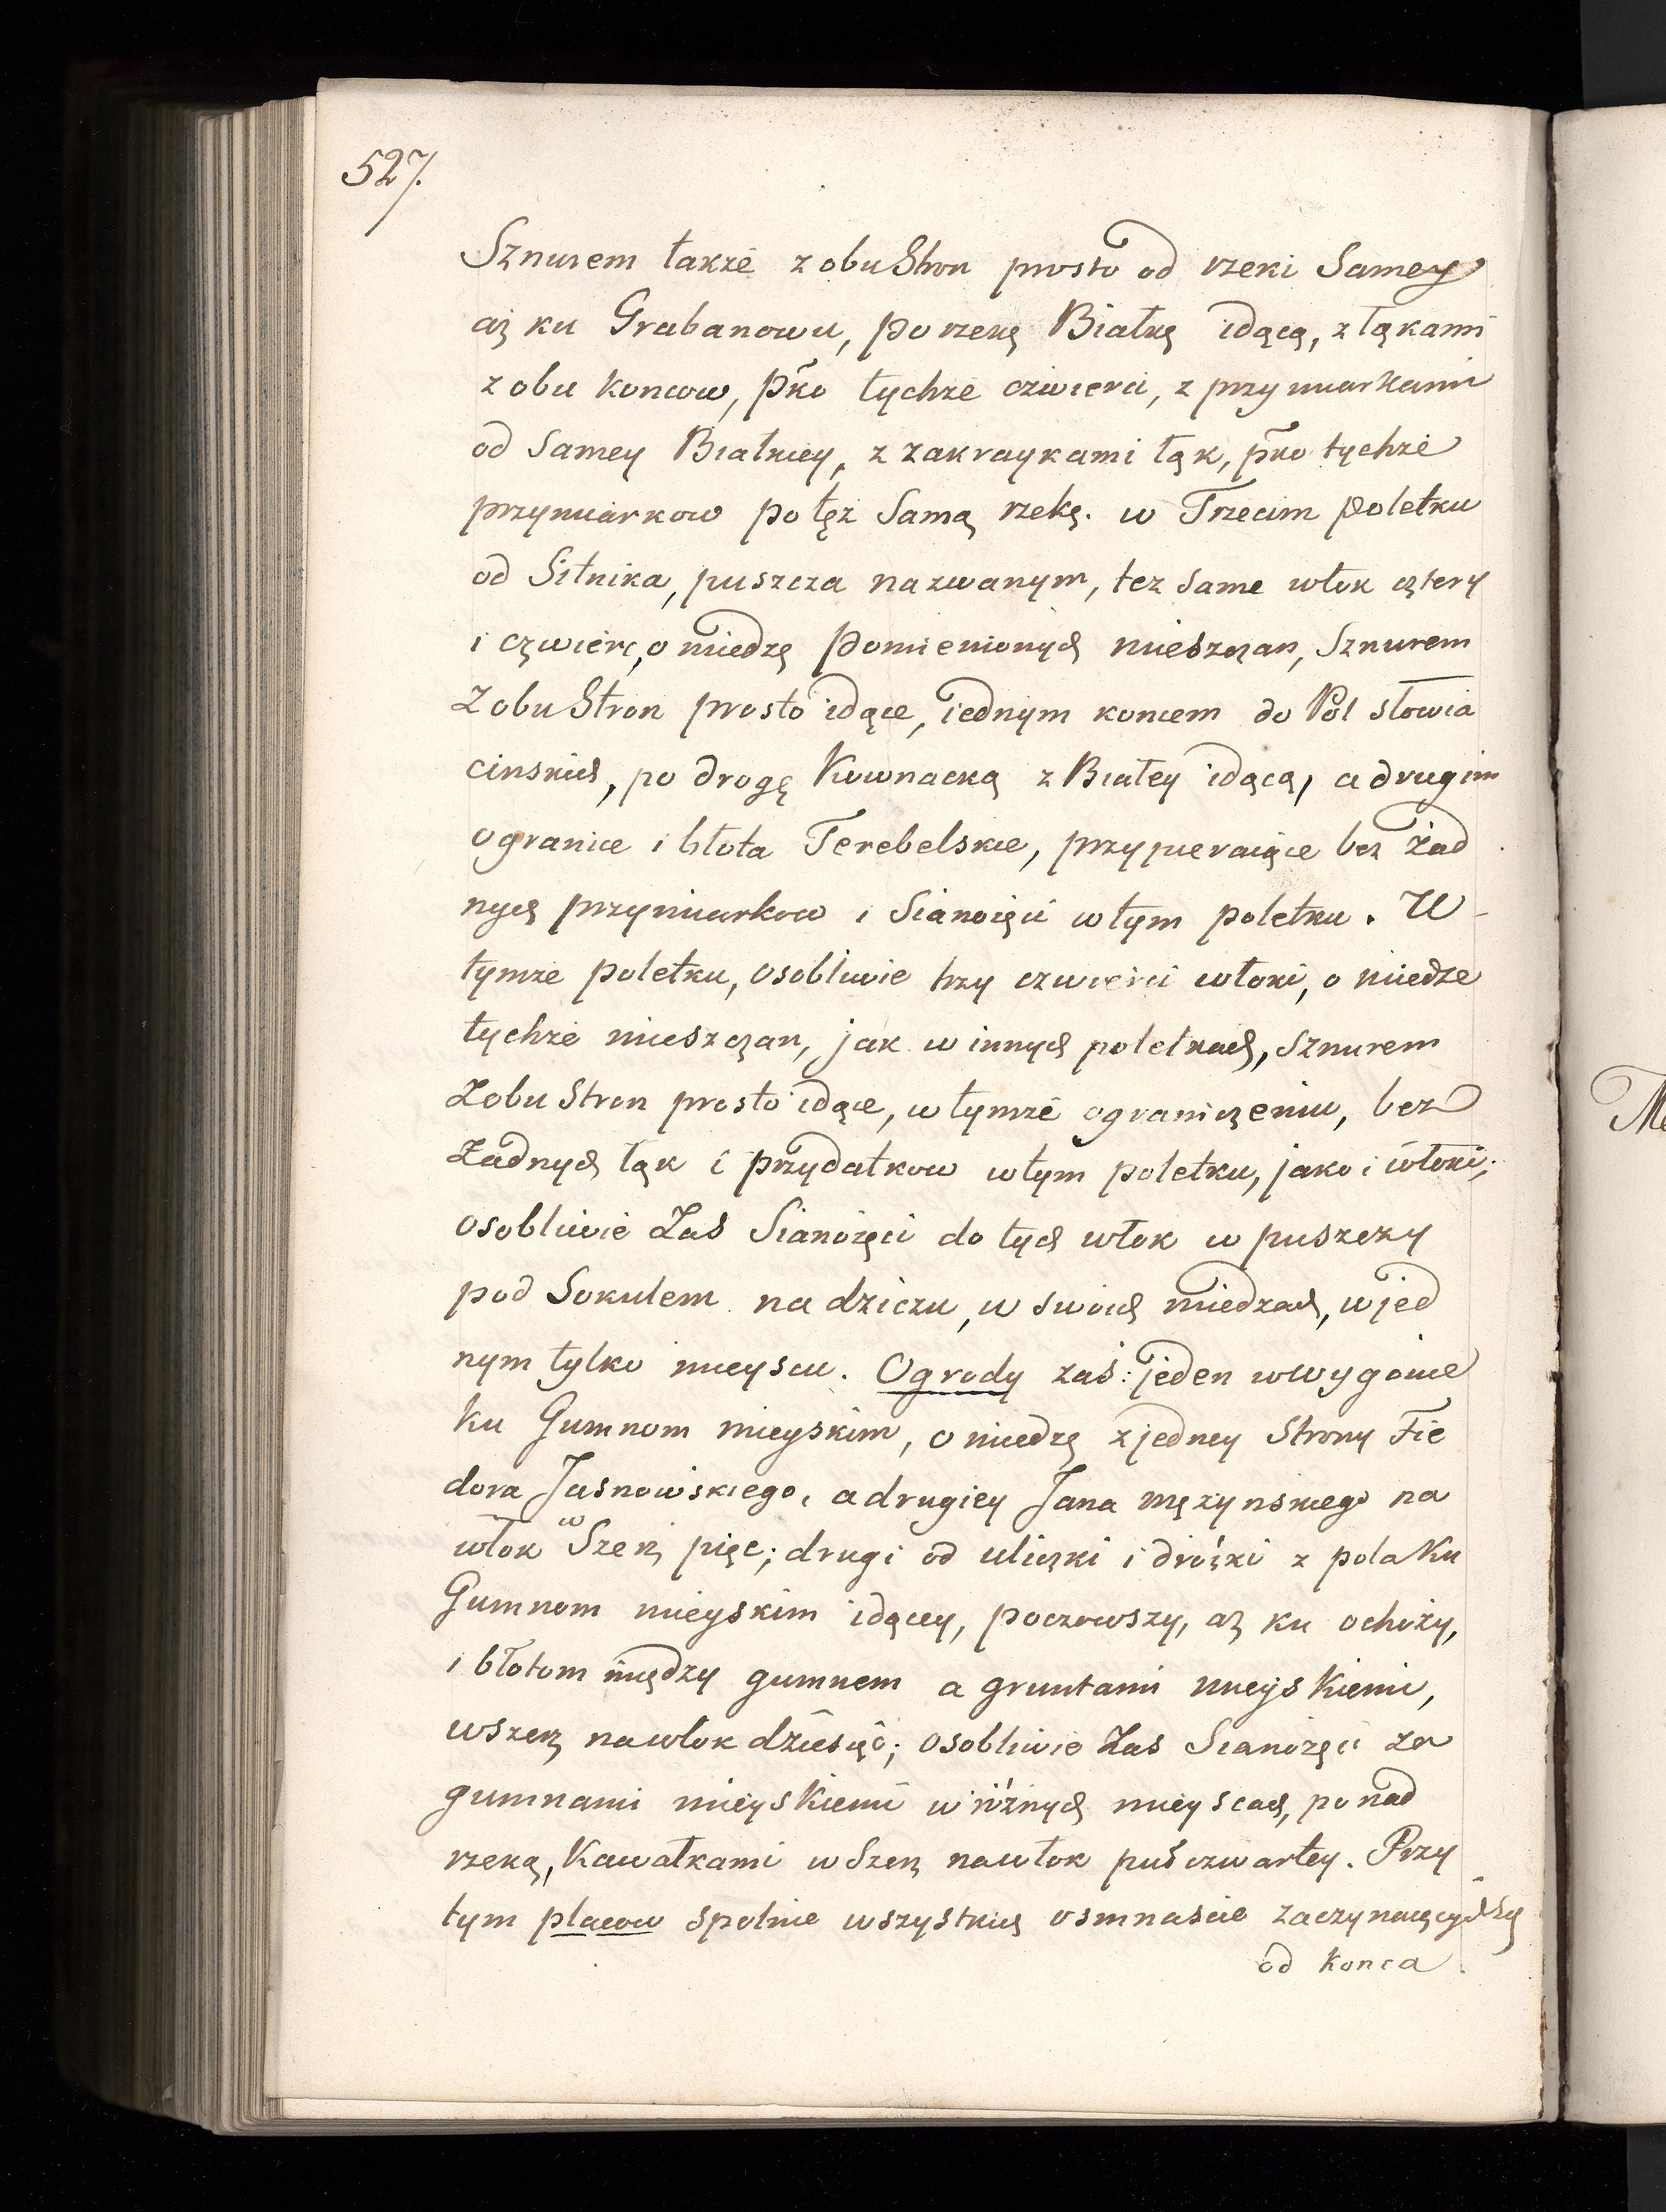 527.
Sznurem także z obu Stron prosto od rzeki Samey
aż ku Grabanowu, po rzekę Białkę idącą, z łąkami
z obu koncow, pko tychże czwierci, z przymiarkami
od Samey Białkiey, z zakraykami łąk, pko tychże
przymiarkow po tęż Samą rzekę. w Trzecim poletku
od Sitnika, puszcza nazwanym, tez same włok cztery
i czwierć, o miedzę pomienionych mieszczan, Sznurem
Z obu Stron prosto idące, iednym koncem do Pól słowia
cinskich, po drogę Kownacką z Białey idącą, a drugim
o granice i błota Terebelskie, przypieraiące bez żad
nych przymiarkow i Sianożęci w tym poletku. W
tymże poletku, osobliwie trzy czwierci włoki, o miedze
tychże mieszczan, jak w innych poletkach, Sznurem
Z obu Stron prosto idące, w tymże ograniczeniu, bez
Żadnych łąk i przydatkow w tym poletku, jako i włoki;
osobliwie Zas Sianożęci do tych włok w puszczy
pod Sokulem na dziczu, w swoich miedzach, w jed
nym tylko mieyscu. Ogrody zaś: jeden w wygonie
ku Gumnom mieyskim, o miedzę z jedney Strony Fie
dora Jasnowskiego, a drugiey Jana mężynskiego na
włok w Szerz pięc; drugi od uliczki i dróżki z pola Ku
Gumnom mieyskim idącey, poczowszy, aż ku ochoży,
i błotom między gumnem a gruntami mieyskiemi,
wszerz na włok dziesięć; osobliwie Zas Sianożęci za
gumnami mieyskiemi w różnych mieyscach, ponad
rzeką, Kawałkami w Szerz na włok puł czwartey. Przy
tym placow spolnie wszystkich osmnascie zaczynaiących się
od Konca